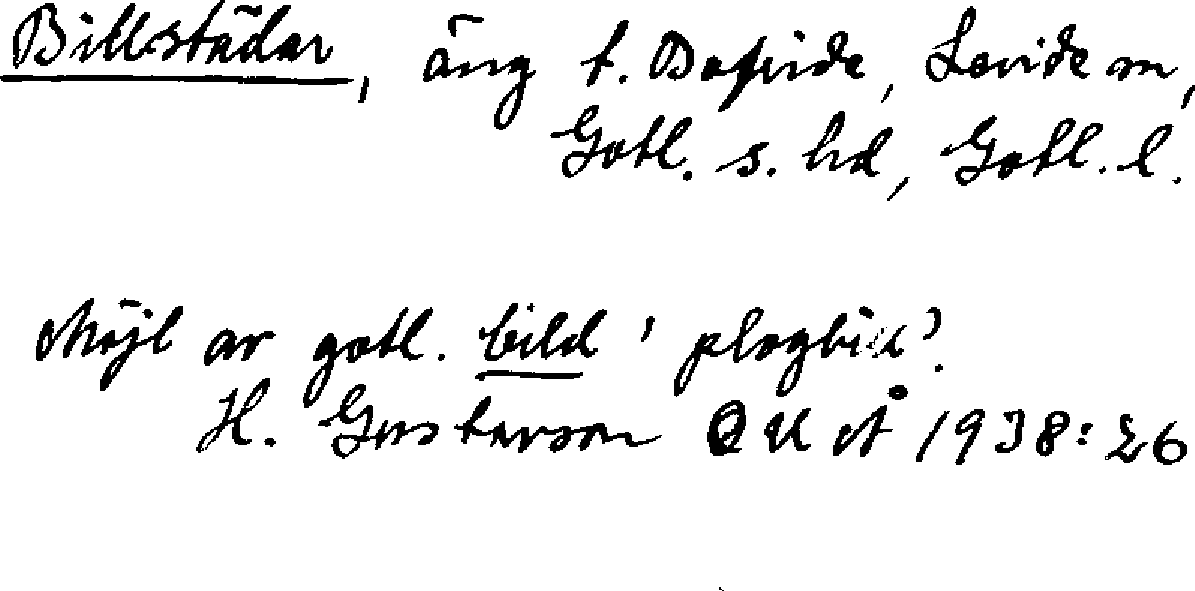 Billstädar, äng t. Levide sn,
Gotl. s. hd, Gotl. l.
Möjl av gotl. bild 'plogbill'.
H. Gustavson 1938:26